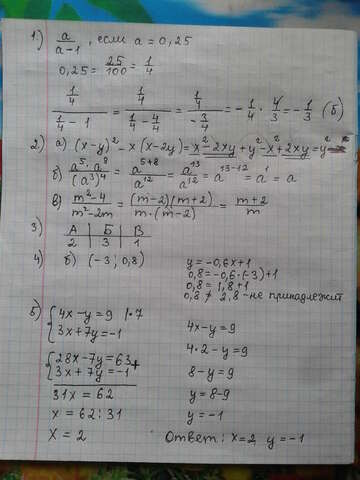 1.) a/(a-1), если a = 0,25
0,25 = 25/100 = 1/4
(1/4)/(1/4 - 1) = (1/4)/(1/4 - 4/4) = (1/4)/(-3/4) = -1/4 · 4/3 = -1/3 (б)
2.) а) (x-y)² - x(x-2y) = x² - 2xy + y² - x² + 2xy = y²
б) a⁵·a⁸/(a³)⁴ = a⁵⁺⁸/a¹² = a¹³/a¹² = a¹³⁻¹² = a¹ = a
в) (m²-4)/(m²-2m) = (m-2)(m+2)/(m·(m-2)) = (m+2)/m
3) А | Б | В
2 | 3 | 1
4) б) (-3; 0,8)
y = -0,6x+1
0,8 = -0,6·(-3)+1
0,8 = 1,8+1
0,8 ≠ 2,8 - не принадлежит
5) { 4x-y=9 |·7
{ 3x+7y=-1
{ 28x-7y=63 +
{ 3x+7y=-1
31x = 62
x = 62:31
x = 2
4x-y=9
4·2-y=9
8-y=9
y=8-9
y=-1
Ответ: x=2 y=-1